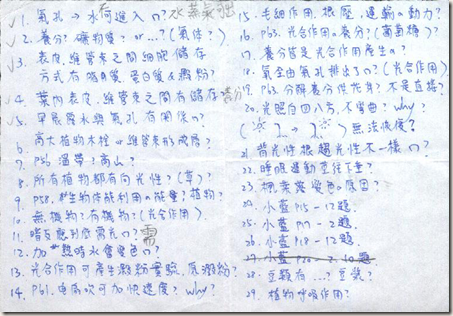 1. 氣孔→水何進入?水蒸氣
2. 養分?礦物質?or…?(氣体?)
3. 表皮、維管束之間細胞儲存
方式有脂質、蛋白質&澱粉?
4. 葉內表皮、維管束之間有儲存養分
5. 旱展露水與氣孔有關係?
6. 高大植物木栓or維管束形成層?
7. P56 溫帶?高山?
8. 所有植物都有向光性?(草)
9. P58. 非生物体能利用の能量?植物?
10. 無機物?有機物?(光合作用)
11. 暗反應到底需光?需
12. 加熱時水會變色?
13. 光合作用可產生澱粉實驗,原澱粉?
14. P61. 電扇吹可加快速度?why?
15. 毛細作用、根壓,運輸の動力?
16. P63. 光合作用の養分?(葡萄糖)?
17. 養分皆是光合作用產生の?
18. 氧全由氣孔排出了?(光合作用)
19. P63. 分解養分供花身?不是直接?
20. 光照自四八方,不彎曲?why?
無法恢復?
21. 背光性根趨光性不一樣?
22. 睡眠運動是往下垂?
23. 楓葉變色の原因?
24. 小藍 P15-12題.
25. 小藍 P17-2題.
26. 小藍 P18-12題.
27. 小藍 10題
28. 豆類有…?豆氧?
29. 植物呼吸作用?